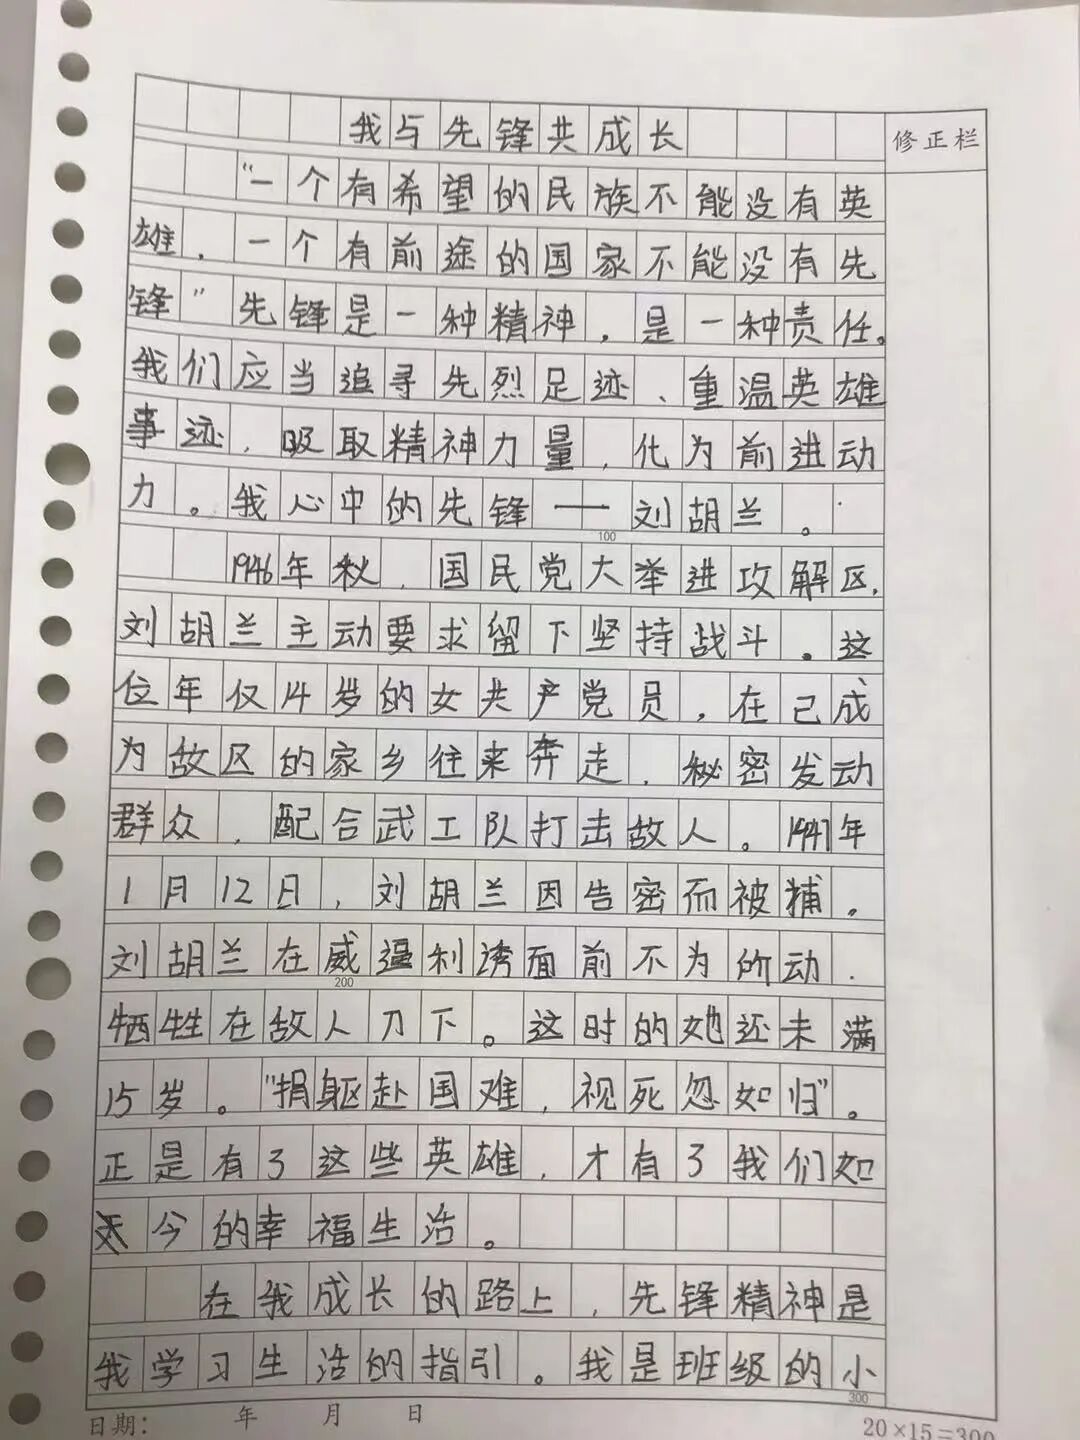 我与先锋共成长
修正栏
“一个有希望的民族不能没有英
雄，一个有前途的国家不能没有先
锋”先锋是一种精神，是一种责任。
我们应当追寻先烈足迹、重温英雄
事迹，吸取精神力量，化为前进动
力。我心中的先锋——刘胡兰。
100
1946年秋，国民党大举进攻解区，
刘胡兰主动要求留下坚持战斗。这
位年仅14岁的女共产党员，在已成
为敌区的家乡往来奔走，秘密发动
群众，配合武工队打击敌人。1947年
1月12日，刘胡兰因告密而被捕。
刘胡兰在威逼利诱面前不为所动，
200
牺牲在敌人刀下。这时的她还未满
15岁。“捐躯赴国难，视死忽如归”。
正是有了这些英雄，才有了我们如
今的幸福生活。
在我成长的路上，先锋精神是
我学习生活的指引。我是班级的小
300
日期： 年 月 日
20×15=300